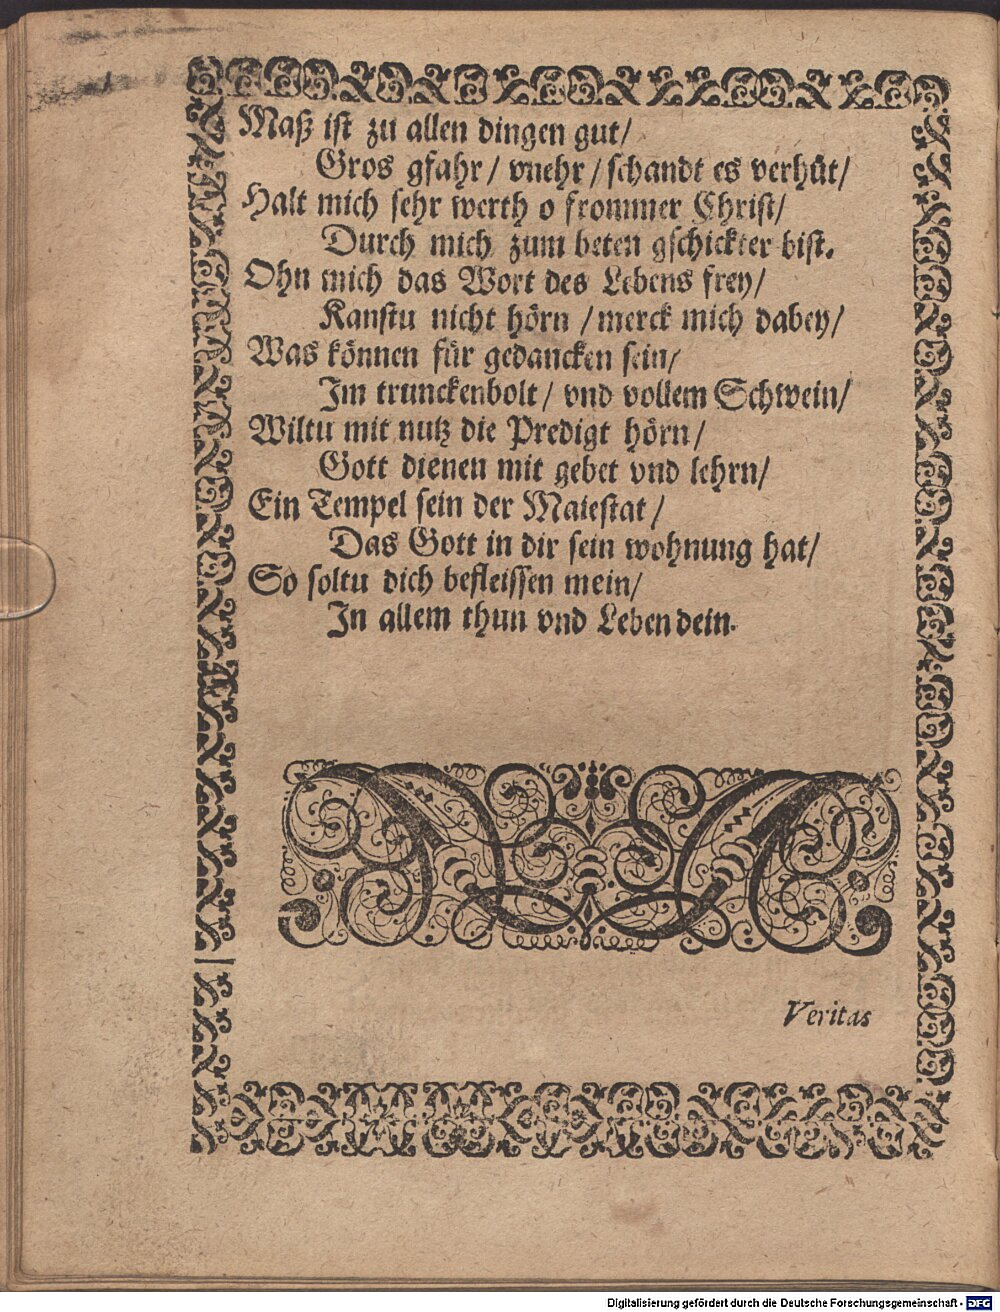 Maß ist zu allen dingen gut/
Gros gfahr/ vnehr/ schandt es verhüt/
Halt mich sehr werth o frommer Christ/
Durch mich zum beten gschickter bist.
Ohn mich das Wort des Lebens frey/
Kanstu nicht hörn/ merck mich dabey/
Was können für gedancken sein/
Im trunckenbolt/ vnd vollem Schwein/
Wiltu mit nutz die Predigt hörn/
Gott dienen mit gebet vnd lehrn/
Ein Tempel sein der Maiestat/
Das Gott in dir sein wohnung hat/
So soltu dich befleissen mein/
In allem thun vnd Leben dein.
Veritas
Digitalisierung gefördert durch die Deutsche Forschungsgemeinschaft - DFG